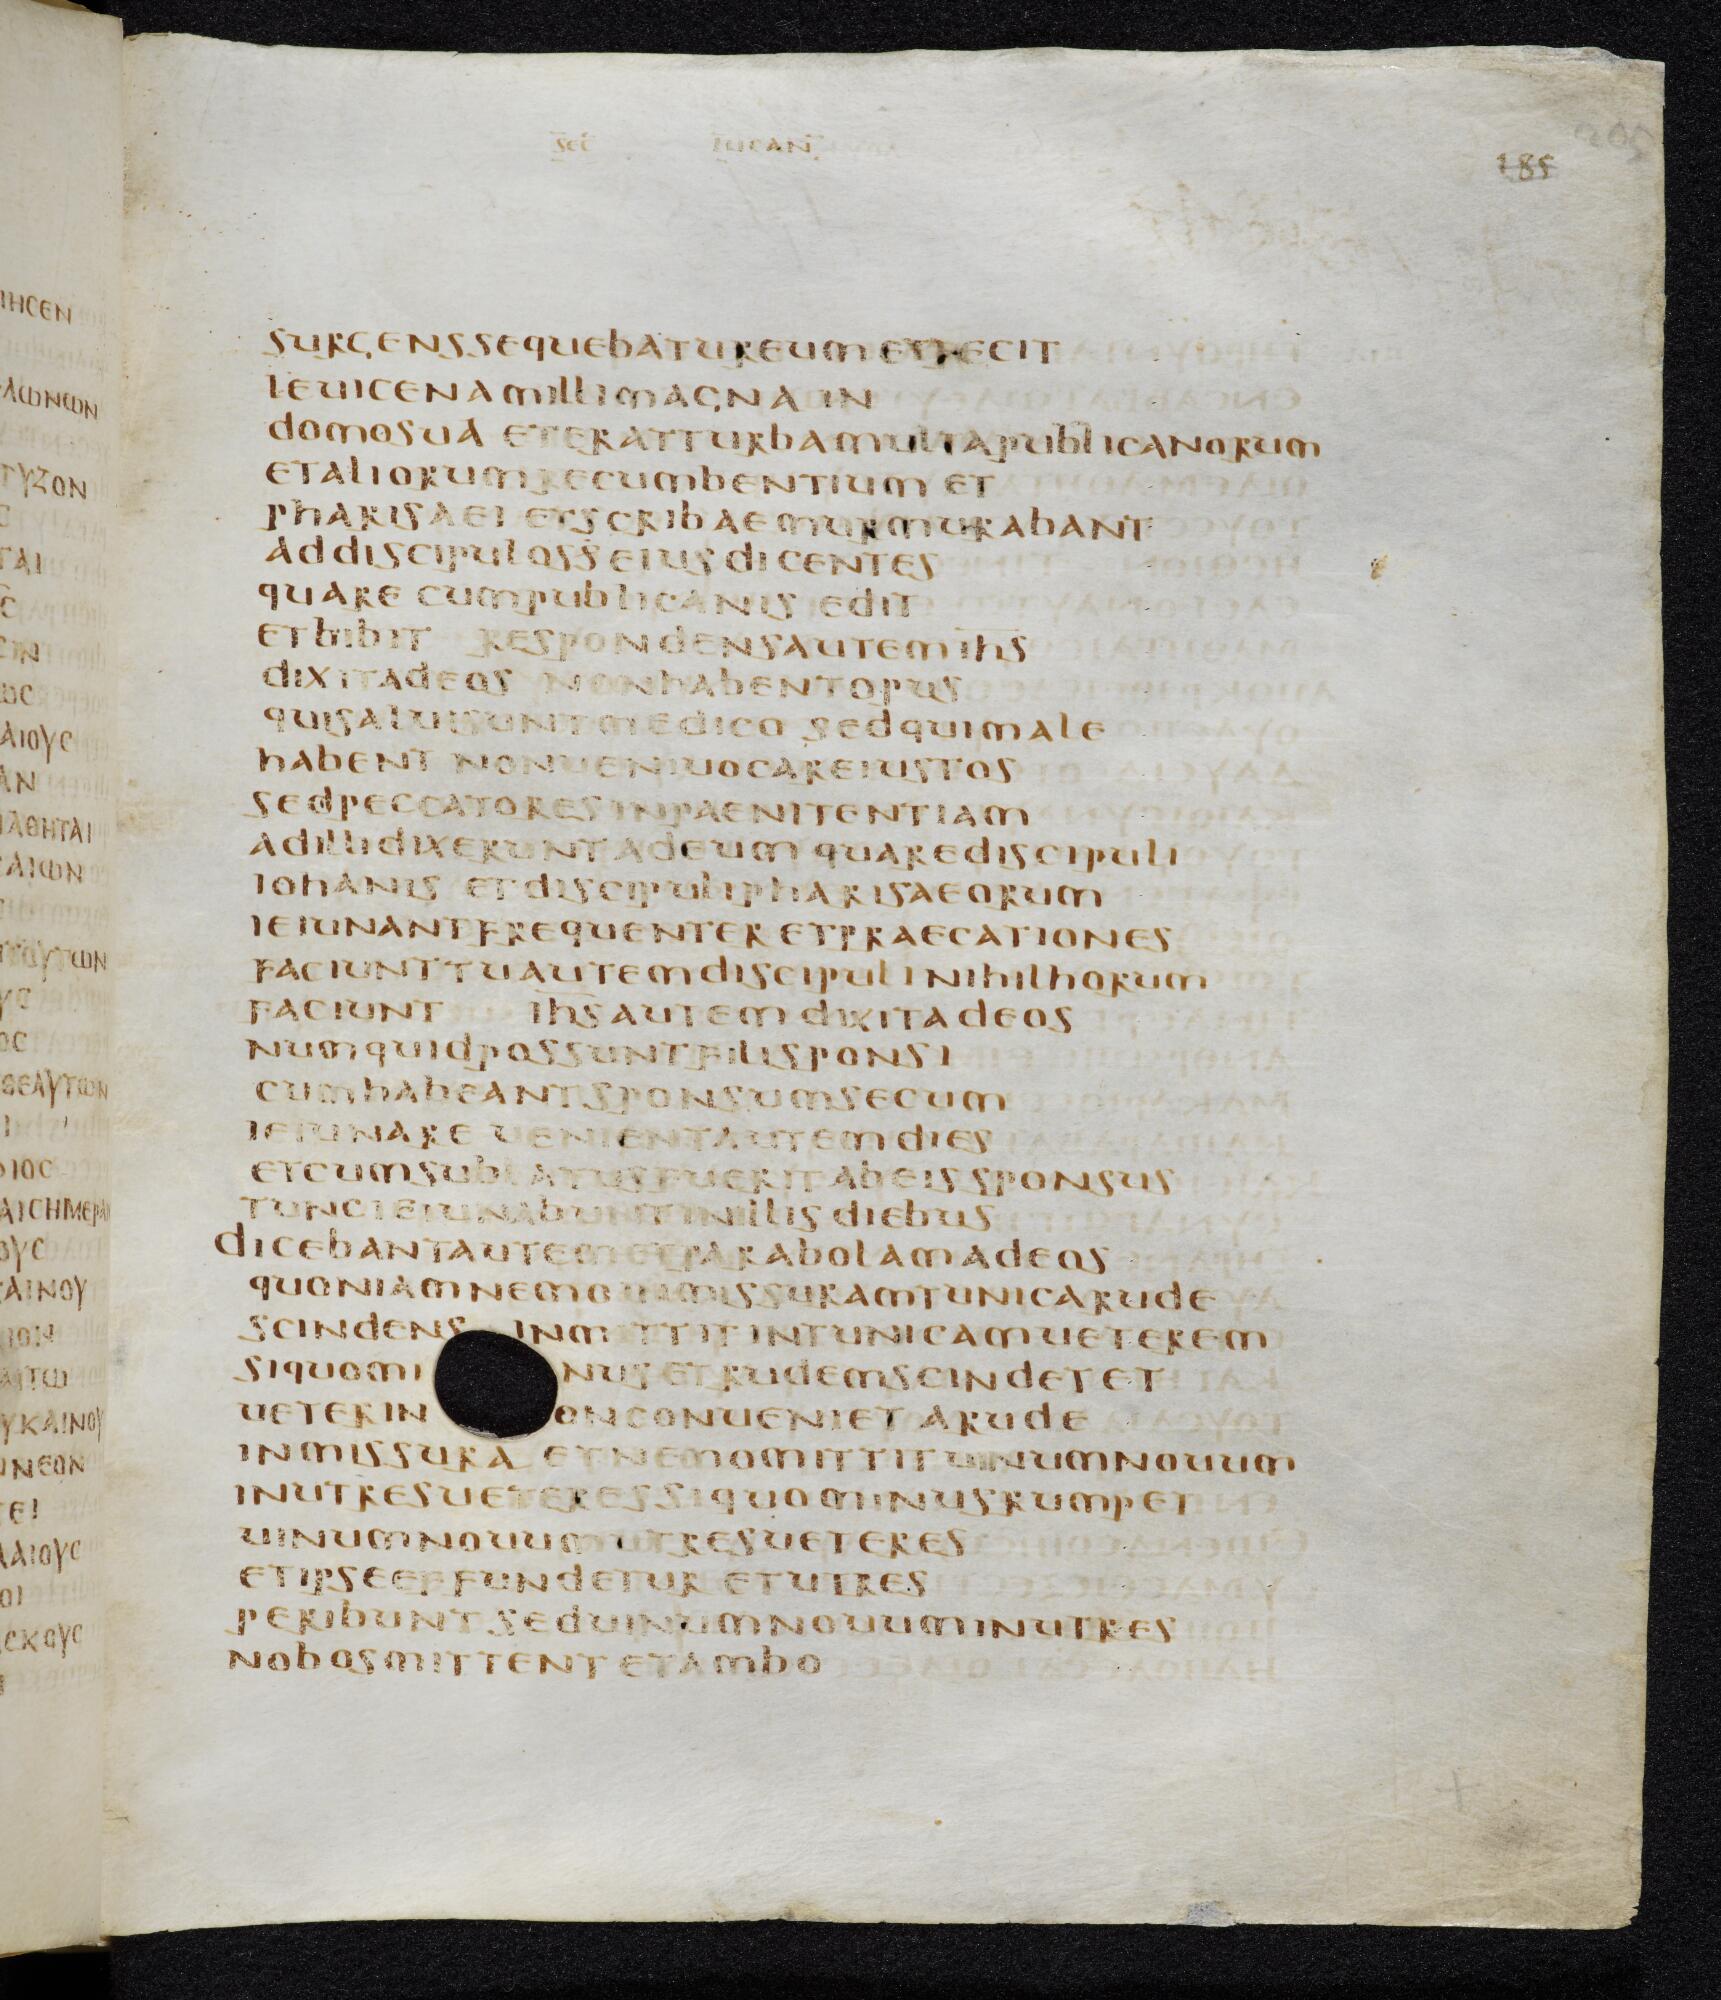 sec lucan
185
surgenssequebatureumetfecit
leuicenamillimagnain
domosua eteratturbamultapublicanorum
etaliorumrecumbentium et
pharisaei etscribaemurmurabant
addiscipulosseiusdicentes
quare cumpublicanis edit
etbibit respondensautemihs
dixitadeos nonhabentopus
quisaluisuntmedico sedquimale
habent nonueniuocareiustos
sedpeccatoresinpaenitentiam
adillidixeruntadeum quarediscipuli
iohanis etdiscipulipharisaeorum
ieiunantfrequenter etpraecationes
faciunttuautemdiscipulinihilhorum
faciunt ihsautem dixitadeos
numquidpossuntfilisponsi
cumhabeantsponsumsecum
ieiunare uenientautemdies
etcumsublatusfueritabeissponsus
tuncieiunabuntinillis diebus
dicebantautemetparabolamadeos
quoniamnemoinmissuramtunicarude
scindens inmittitintunicamueterem
siquomi nusetrudemscindetet
ueterin onconueniet arude
inmissura etnemomittituinumnouum
inutresueteressiquominusrumpet
uinumnouumutresueteres
etipseeffundetur etutres
peribunt seduinumnouuminutres
nobosmittentetambo